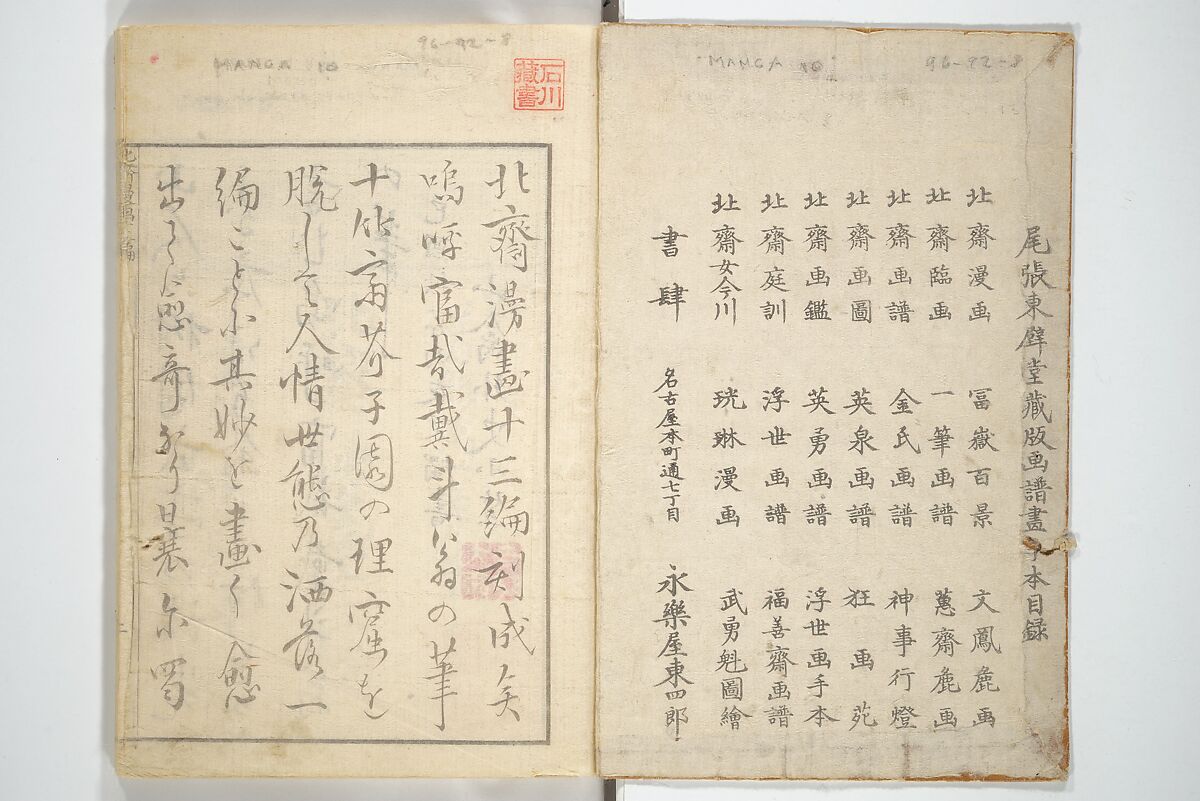 MANGA 10
96-92-8
尾張東壁堂藏版画譜畫手本目録
北齋漫画 冨嶽百景 文鳳麁画
北齋臨画 一筆画譜 蕙齋麁画
北齋画譜 金氏画譜 神事行燈
北齋画圖 英泉画譜 狂画苑
北齋画鑑 英勇画譜 浮世画手本
北齋庭訓 浮世画譜 福善齋画譜
北齋女今川 珖琳漫画 武勇魁圖繪
書肆 名古屋本町通七丁目 永樂屋東四郎
MANGA 10
96-92-8
石川藏書
北齋漫畫十三編刻成矣
嗚呼富哉戴斗翁の筆
十竹斎芥子園の理窟を
脱して人情世態乃洒落一
編ことに其妙を畫く愈
出て愈奇なり曩尓蜀